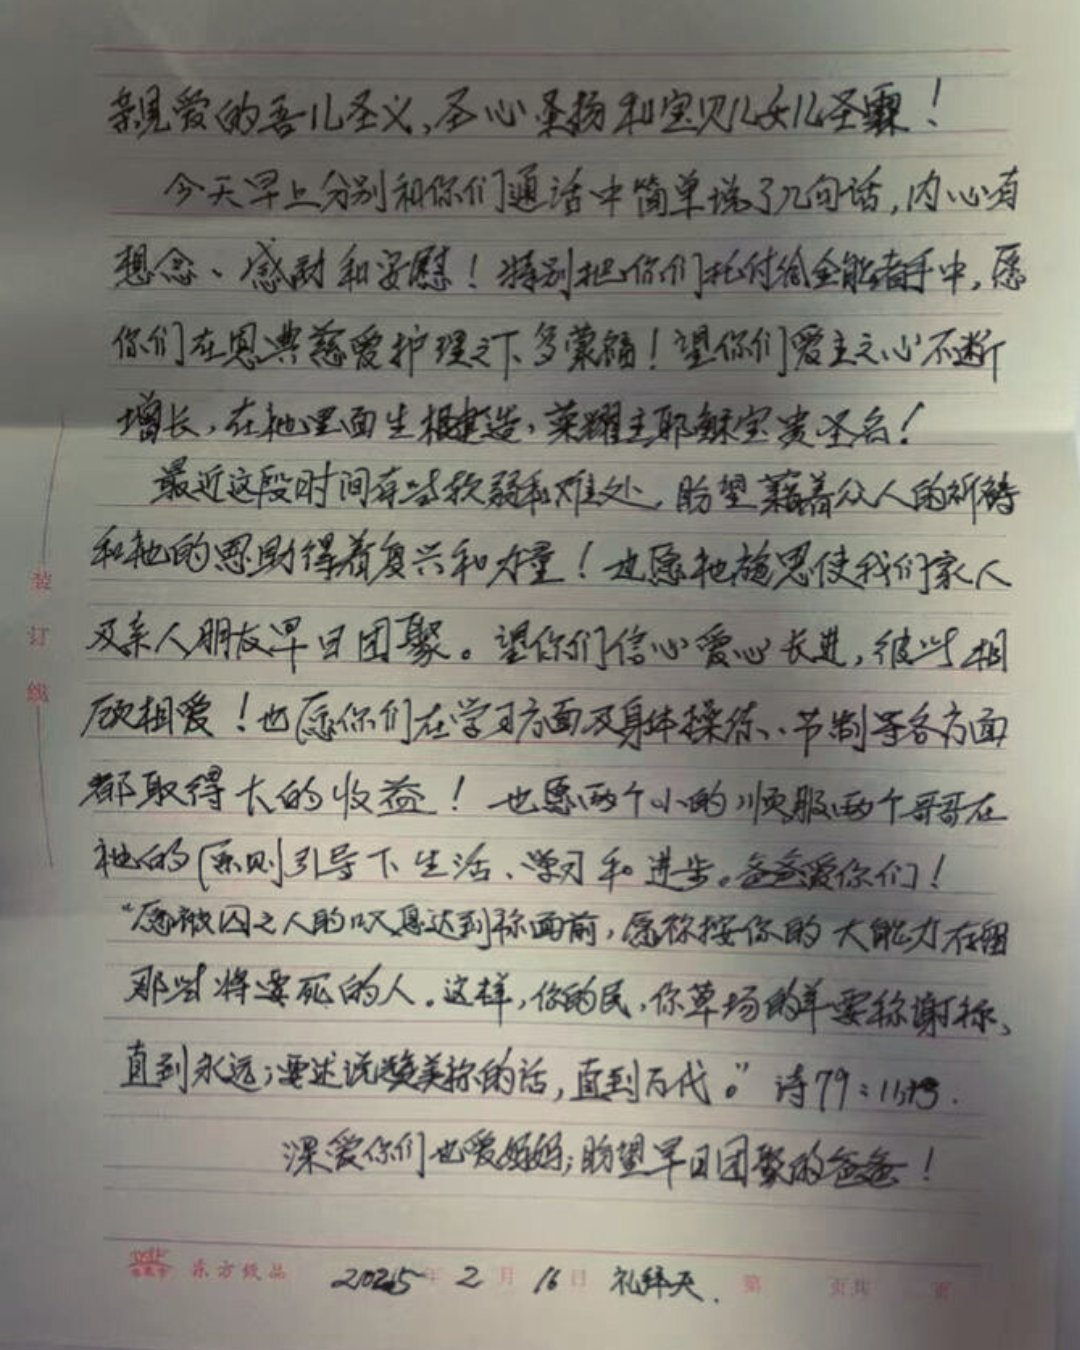 親爱的吾儿圣义、圣心圣扬和宝贝儿女儿圣霖！
今天早上分别和你们通话中简单说了几句话，内心有
想念、感动和安慰！特别把你们托付给全能者手中，愿
你们在恩典慈爱护理之下多蒙福！望你们爱主之心不断
增长，在祂里面生根建造，荣耀主耶稣宝贵圣名！
最近这段时间有些软弱和难处，盼望藉着众人的祈祷
和祂的恩助得着复兴和力量！也愿祂施恩使我们家人
及亲人朋友早日团聚。望你们信心爱心长进，彼此相
顾相爱！也愿你们在学习方面及身体操练、节制等各方面
都取得大的收益！也愿两个小的顺服两个哥哥在
祂的原则引导下生活、学习和进步。爸爸爱你们！
“愿被囚之人的叹息达到祢面前，愿祢按你的大能力存留
那些将要死的人。这样，你的民，你草场的羊要称谢祢，
直到永远；要述说赞美祢的话，直到万代。”诗79：11,13.
深爱你们也爱妈妈；盼望早日团聚的爸爸！
装订线
东方纸品 2025年2月16日 礼拜天. 第 页共 页